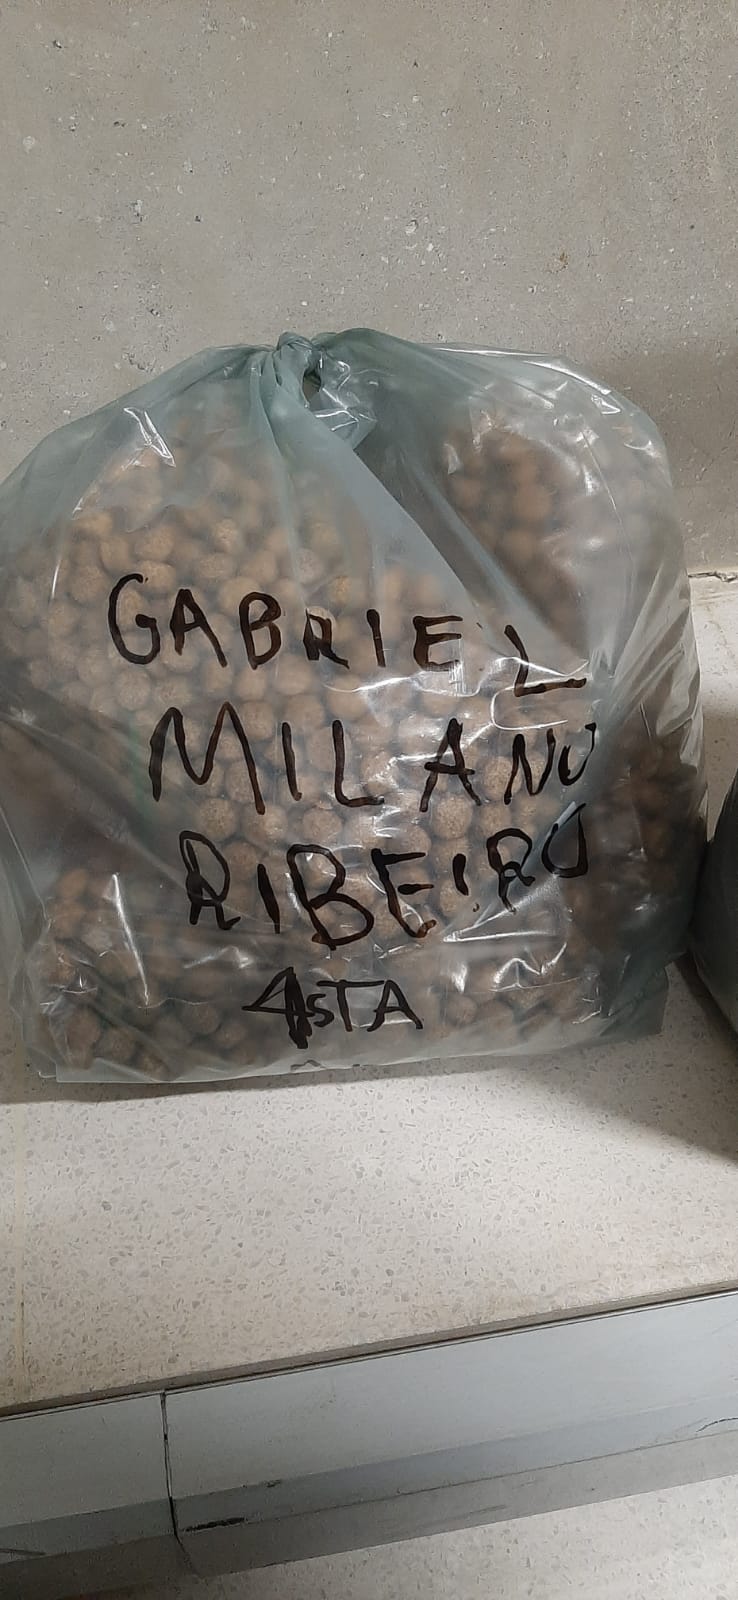 GABRIEL
MILANO
RIBEIRO
4ªsTA